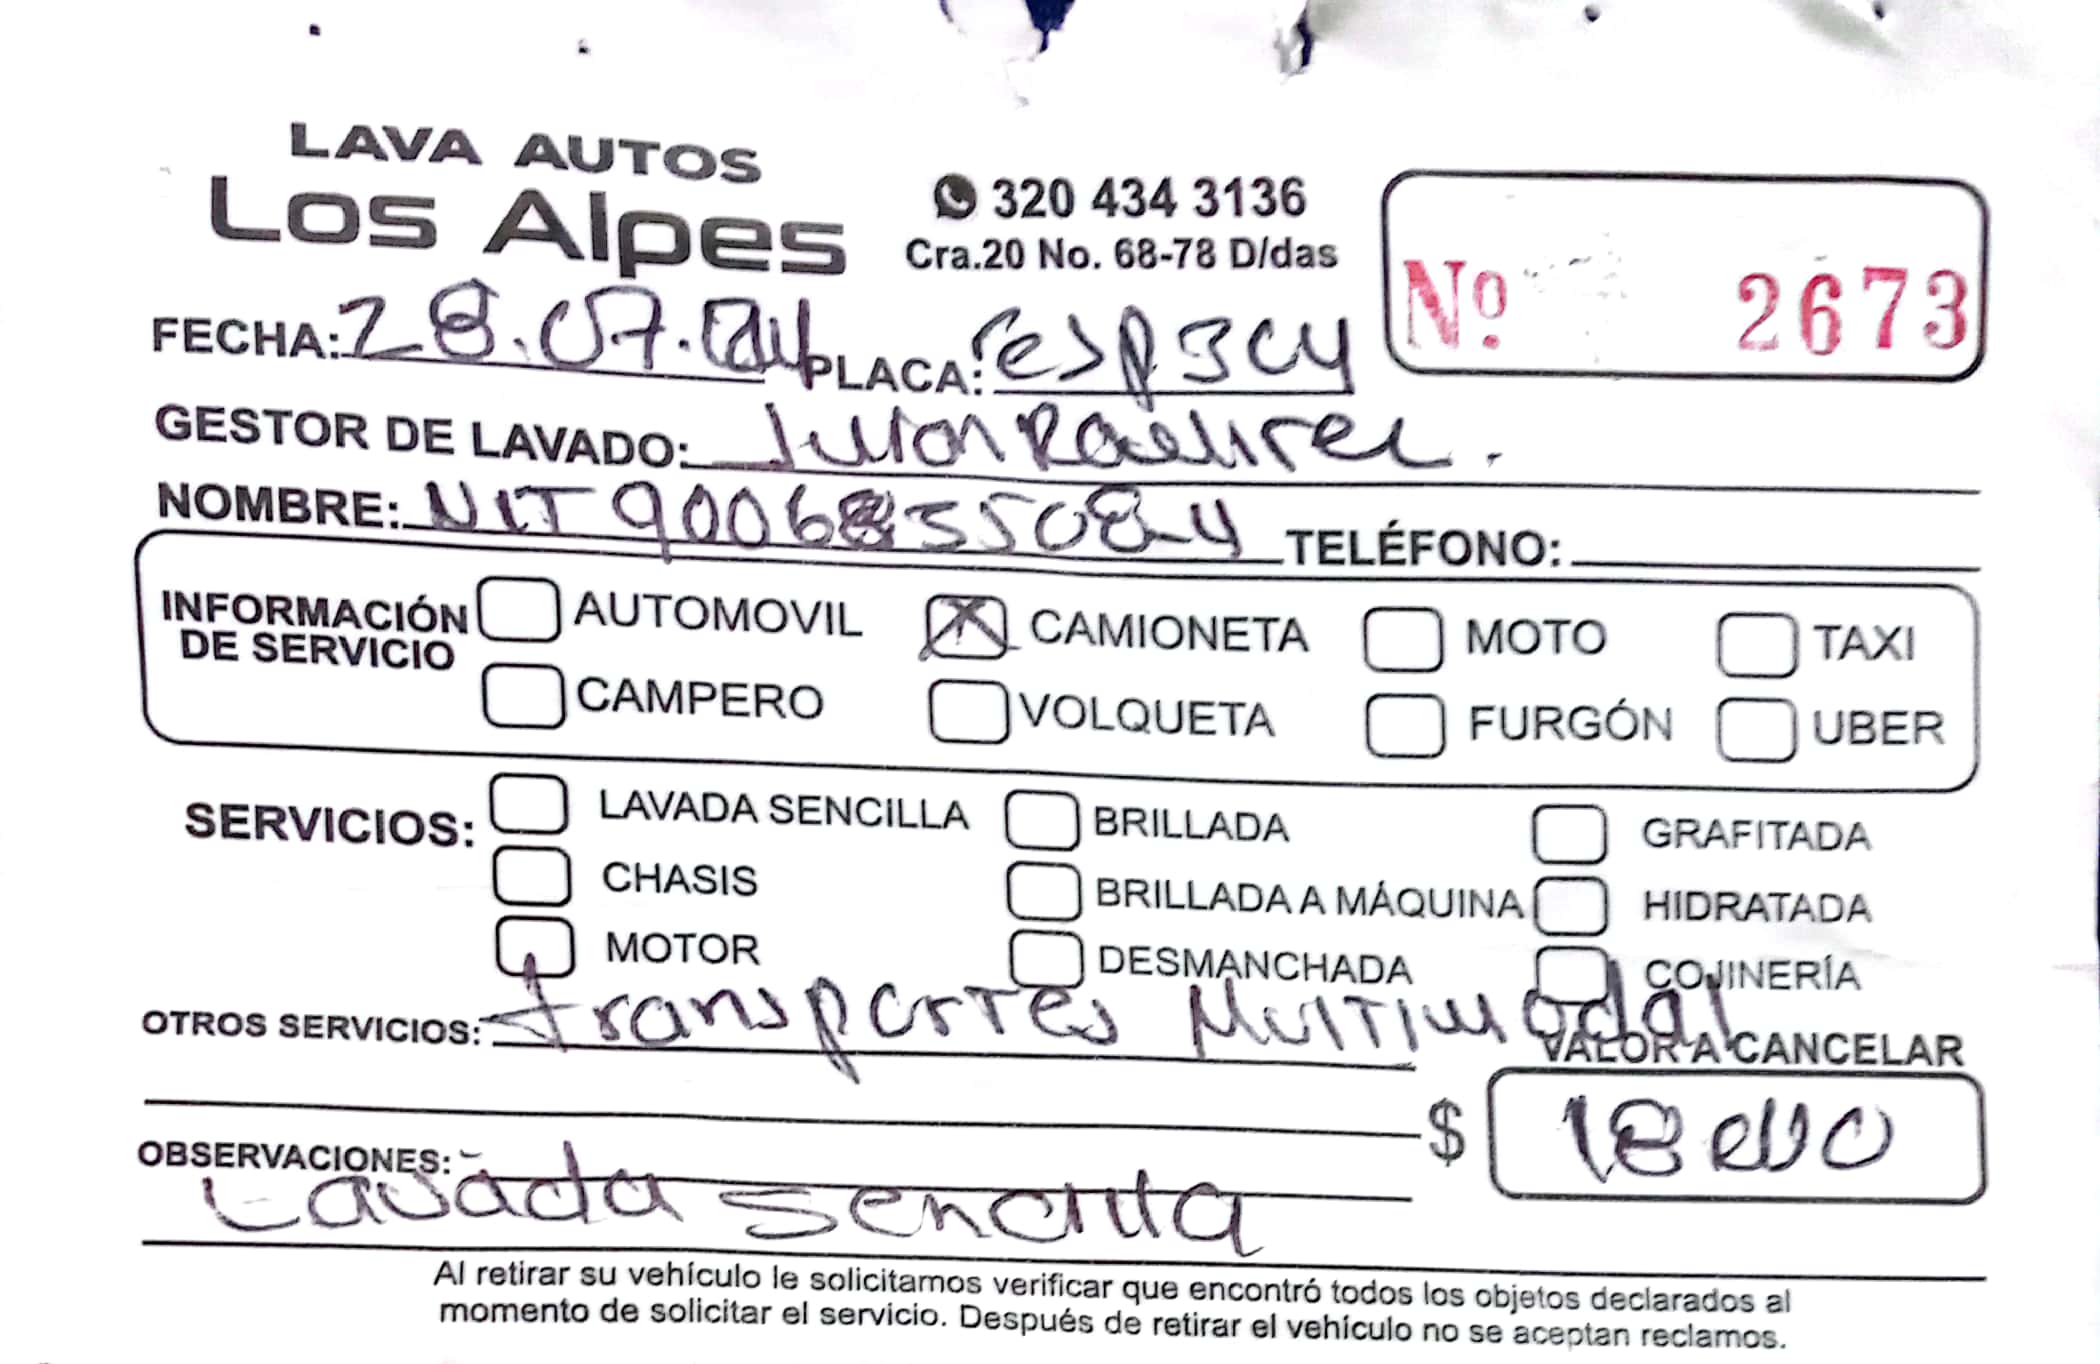 LAVA AUTOS
Los Alpes
320 434 3136
Cra.20 No. 68-78 D/das
Nº 2673
FECHA: 28.07.24 PLACA: esp3cy
GESTOR DE LAVADO: Julian Ramirez.
NOMBRE: NIT 900685508-4 TELÉFONO:
INFORMACIÓN DE SERVICIO
AUTOMOVIL CAMIONETA MOTO TAXI
CAMPERO VOLQUETA FURGÓN UBER
SERVICIOS: LAVADA SENCILLA BRILLADA GRAFITADA
CHASIS BRILLADA A MÁQUINA HIDRATADA
MOTOR DESMANCHADA COJINERÍA
OTROS SERVICIOS: transportes Multimodal
VALOR A CANCELAR
$ 18000
OBSERVACIONES:
Lavada sencilla
Al retirar su vehículo le solicitamos verificar que encontró todos los objetos declarados al
momento de solicitar el servicio. Después de retirar el vehículo no se aceptan reclamos.